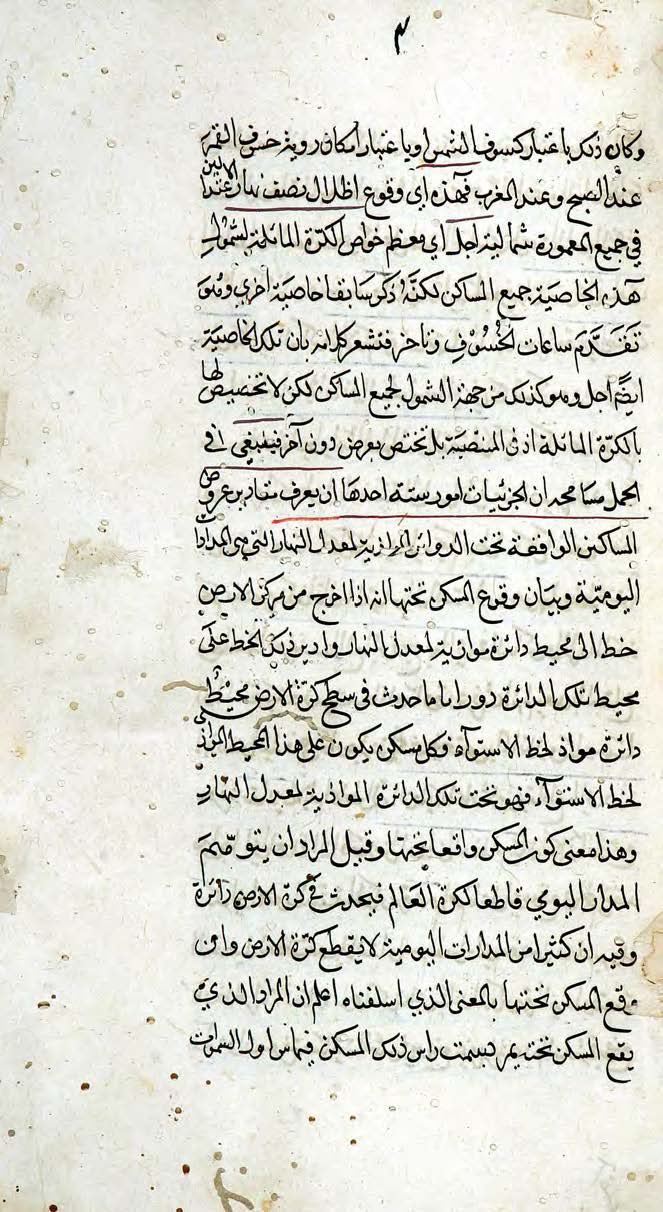 ٣
وكان ذلك باعتبار كسوف الشمس او باعتبار امكان روية خسوف القمر
عند الصبح وعند المغرب فهذه اى وقوع اظلال نصف نهار الاعتدالين
في جميع المعمورة شمالية اجل اي معظم خواص الكرة المائلة لشمول
هذه الخاصية جميع المساكن لكنه ذكر سابقا خاصية اخرى وهو
تقدّم ساعات الخسوف وتأخر فتشعر كلامه بان تلك الخاصية
ايضًا اجل وهو كذلك من جهة الشمول لجميع المساكن لكن لا تخصيص لها
بالكرة المائلة اذ فى المنتصبة بل تختص بعرض دون آخر فينبغي في
الحمل مسامحة ان الجزئيات امور ستة احدها ان يعرف مقادير عروض
المساكن الواقعة تحت الدوائر الموازية لمعدل النهار التي هي المدارات
اليوميّة وبيان وقوع المسكن تحتها انه اذا اخرج من مركز الارض
خط الى محيط دائرة موازية لمعدل النهار وادير ذلك الخط على
محيط تلك الدائرة دورا ما حدث في سطح كرة الارض محيط
دائرة مواز لخط الاستوآء فكل مسكن يكون على هذا المحيط الموازى
لخط الاستوآء فهو تحت تلك الدائرة الموازية لمعدل النهار
وهذا معنى كون المسكن واقعا تحتها وقيل المراد ان يتوهّم
المدار اليومي قاطعا لكرة العالم فيحدث في كرة الارض دائرة
وفيه ان كثيرا من المدارات اليومية لا يقطع كرة الارض وان
وقع المسكن تحتها بالمعنى الذي اسلفناه اعلم ان المراد الذي
يقع المسكن تحته يمر بسمت راس ذلك المسكن فيماس اول السموات